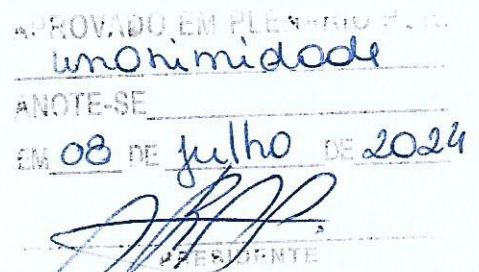 APROVADO EM PLENÁRIO POR
unanimidade
ANOTE-SE
EM 08 DE julho DE 2024
PRESIDENTE